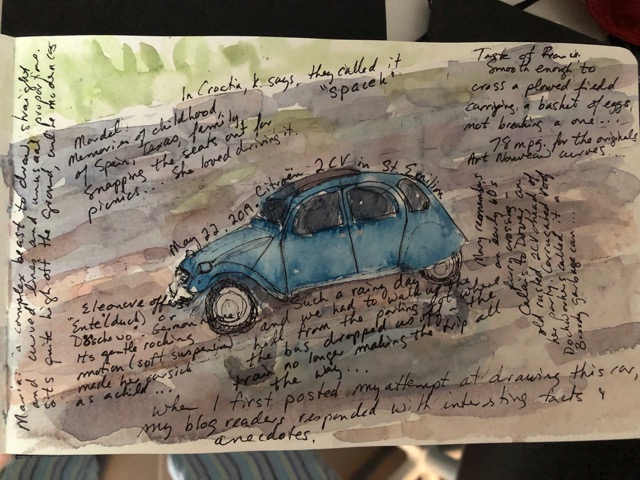 In Croatia, K. says, they called it
"spacek"
Mardel:
Memories of childhood,
of Spain, Texas, family,
snapping the seats out for
picnics.... She loved driving it.
Taste of France.
Smooth enough to
cross a plowed field
carrying a basket of eggs
not breaking a one....
78 mpg. for the originals
Art Nouveau curves...
Maria: a complex beast to draw, straight
and curved lines and unusual proportions.
sits quite high off the ground,
May 22, 2019 Citroën 2CV in St Emilion
Mary remembers
an early 60's
ferry crossing -
Calais to Dover and
old rusted
her party
Eleanore offers
Ente (duck) or
German
Its gentle rocking
motion (soft suspension)
made her carsick
as a child...
Such a rainy day
and we had to walk up the
hill from the parking lot
the bus dropped us off
train no longer making the trip all
the way...
When I first posted my attempt at drawing this car,
my blog readers responded with interesting facts &
anecdotes.